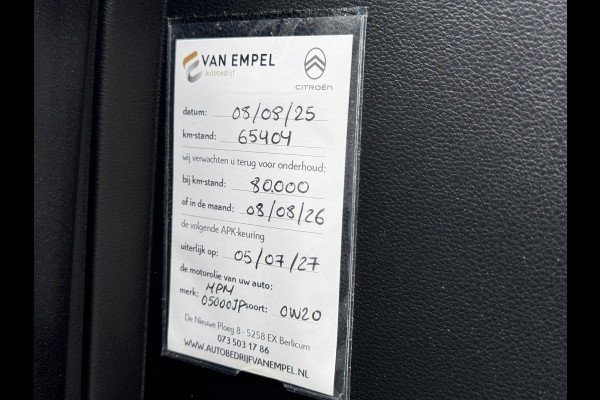 VAN EMPEL
autobedrijf
CITROËN
datum: 08/08/25
km-stand: 65404
wij verwachten u terug voor onderhoud:
bij km-stand: 80.000
of in de maand: 08/08/26
de volgende APK-keuring
uiterlijk op: 05/07/27
de motorolie van uw auto:
merk: MPM 05000JP soort: 0W20
De Nieuwe Ploeg 8 - 5258 EX Berlicum
073 503 17 86
WWW.AUTOBEDRIJFVANEMPEL.NL